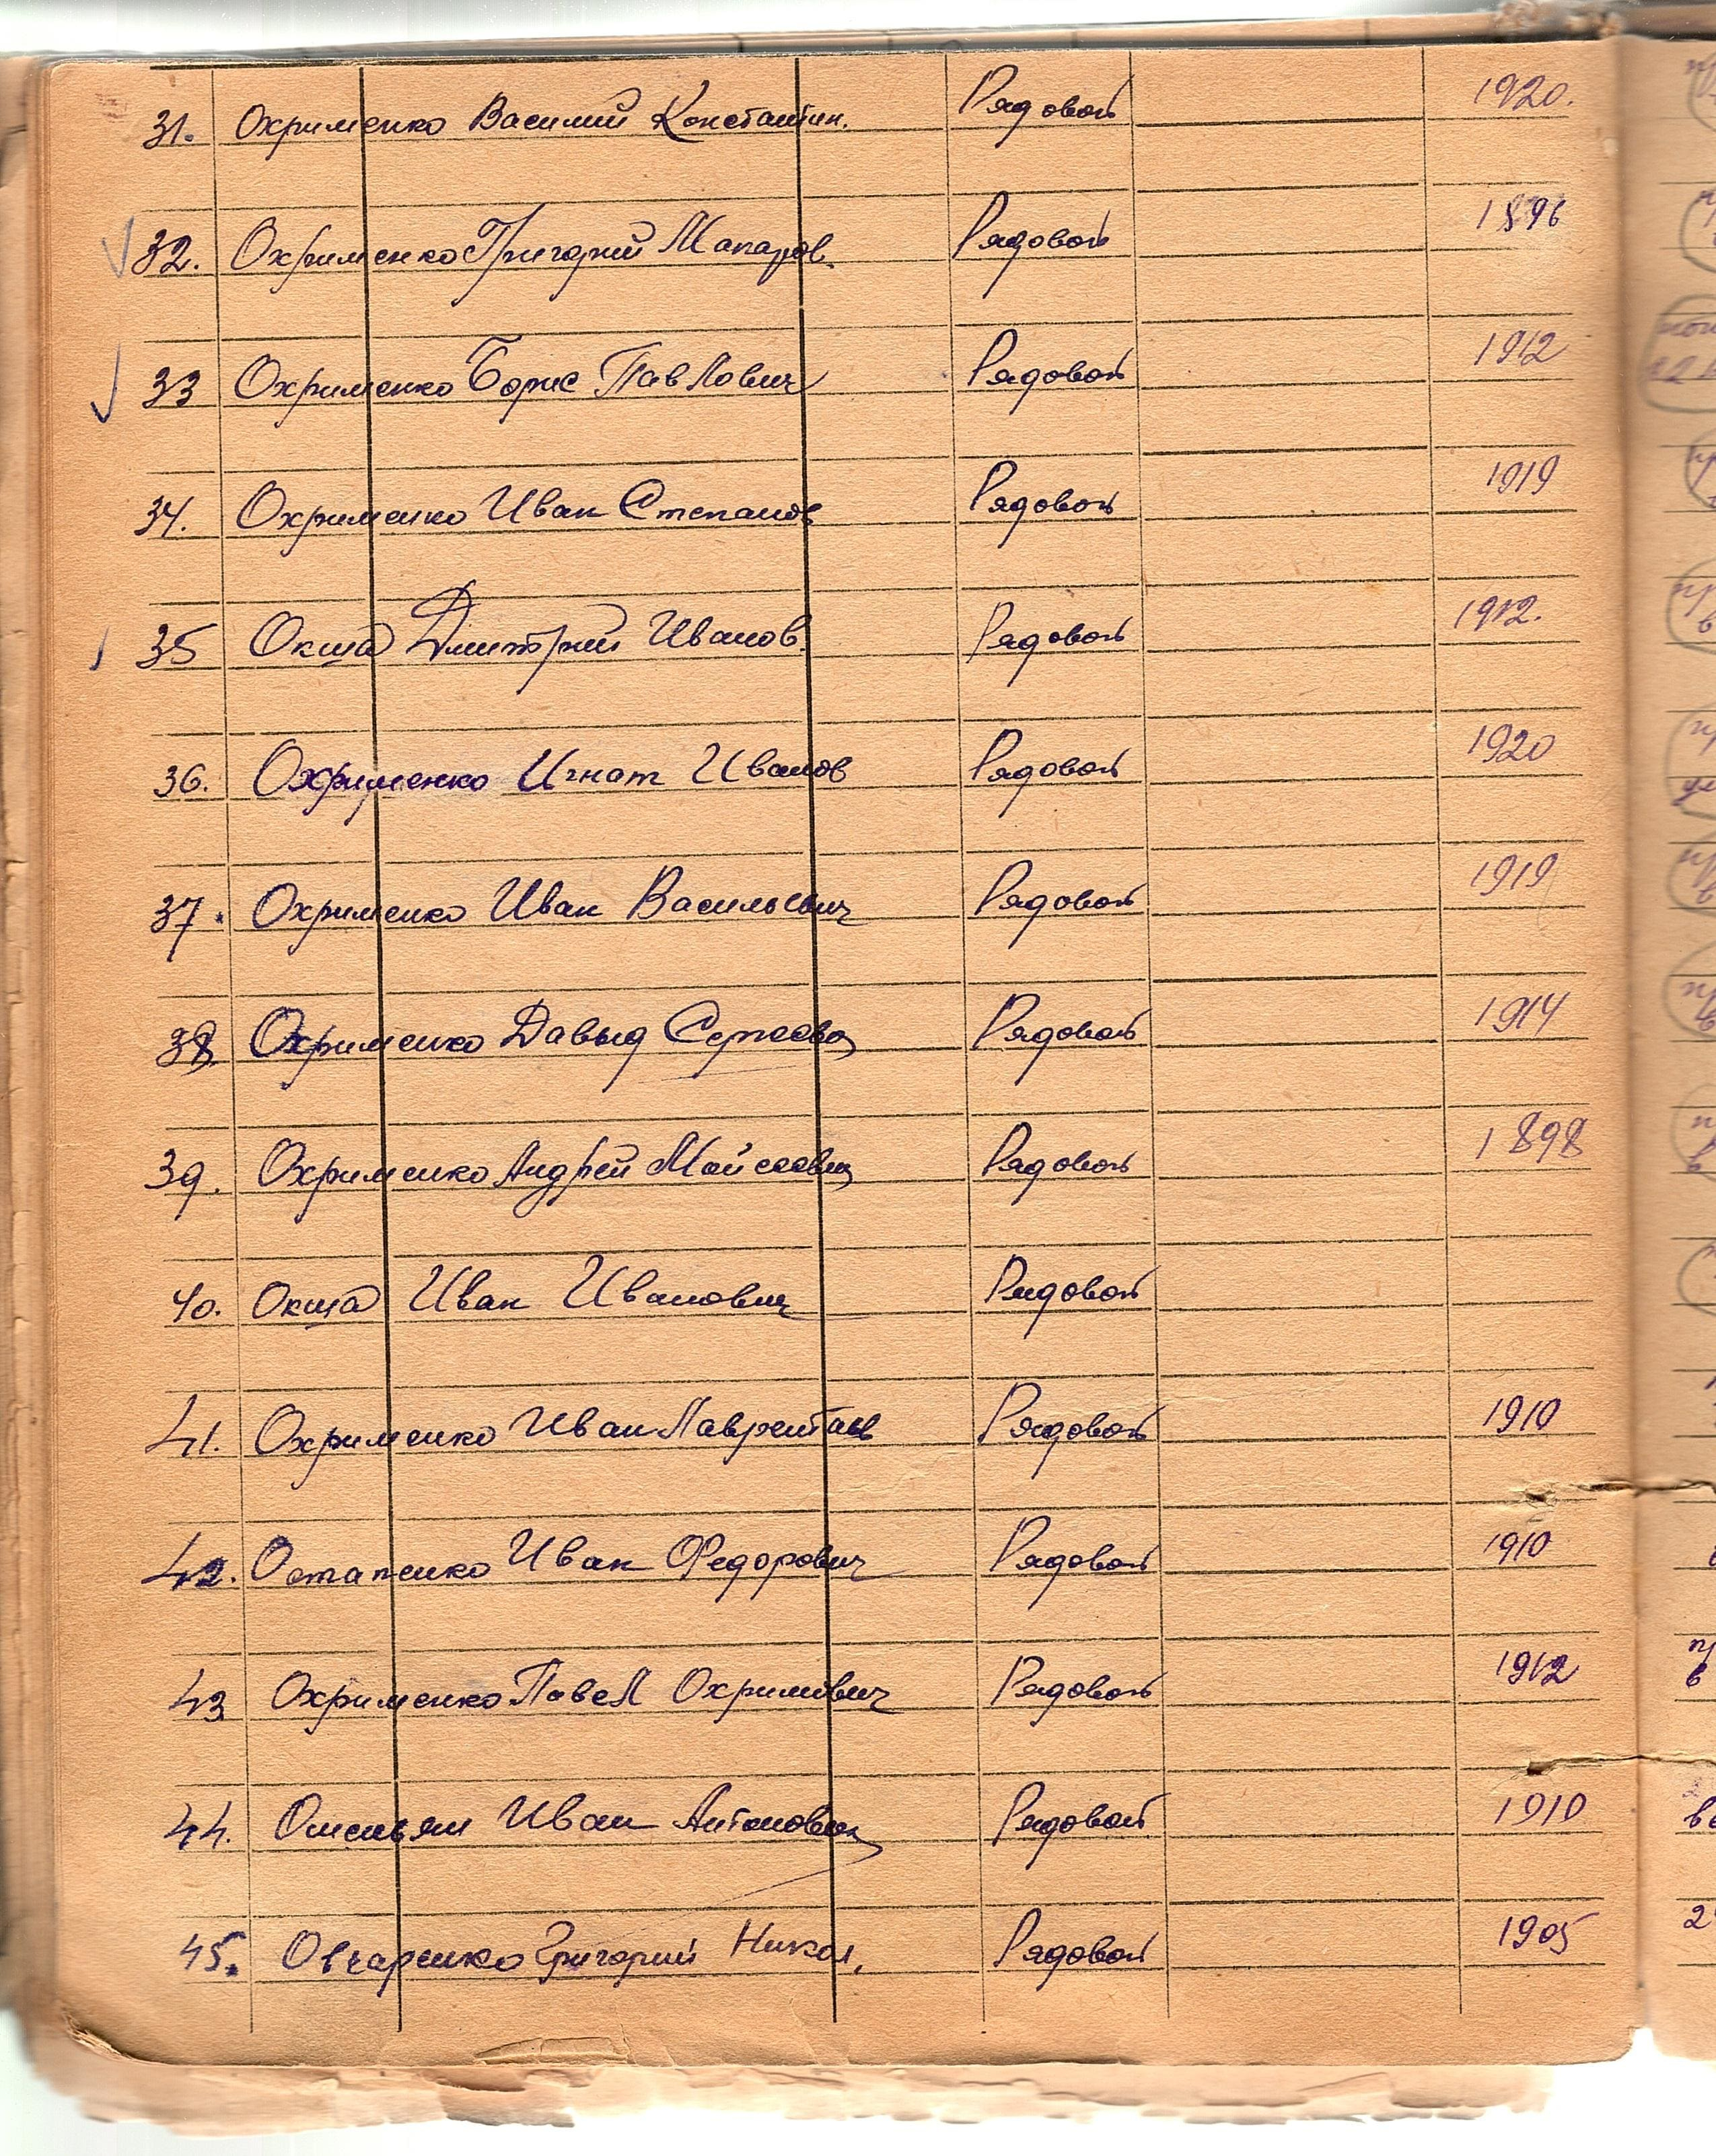 31. Охрименко Василий Константин. Рядовой 1920.
32. Охрименко Григорий Макаров. Рядовой 1896
33 Охрименко Борис Павлович Рядовой 1912
34. Охрименко Иван Степанов Рядовой 1919
35 Окша Дмитрий Иванов. Рядовой 1912.
36. Охрименко Игнат Иванов Рядовой 1920
37. Охрименко Иван Васильевич Рядовой 1919
38. Охрименко Давыд Рядовой 1914
39. Охрименко Андрей Мойсеевич Рядовой 1898
40. Окша Иван Иванович Рядовой
41. Охрименко Иван Рядовой 1910
42. Остапенко Иван Федорович Рядовой 1910
43 Охрименко Павел Охримович Рядовой 1912
44. Омельян Иван Антонович Рядовой 1910
45. Овчаренко Григорий Никол. Рядовой 1905